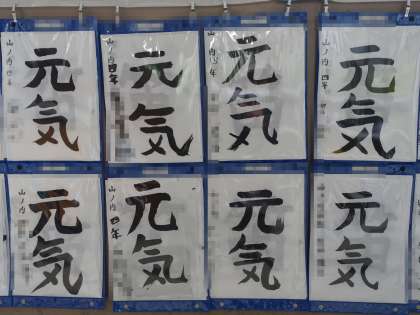 元気
山ノ内 四年
元気
山ノ内 四年
元気
山ノ内 四年
元気
山ノ内 四年
元気
山ノ内
元気
山ノ内 四年
元気
元気